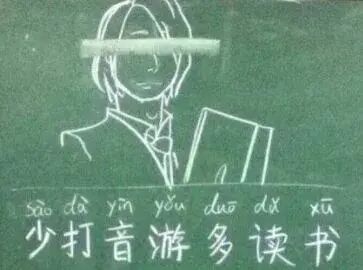 sǎo dǎ yīn yǒu duō dǎ xū
少打音游多读书